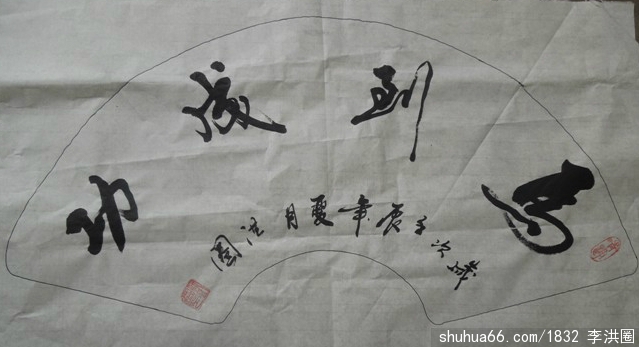 马到成功
歲次壬辰年夏月洪圈
shuhua66.com/1832 李洪圈